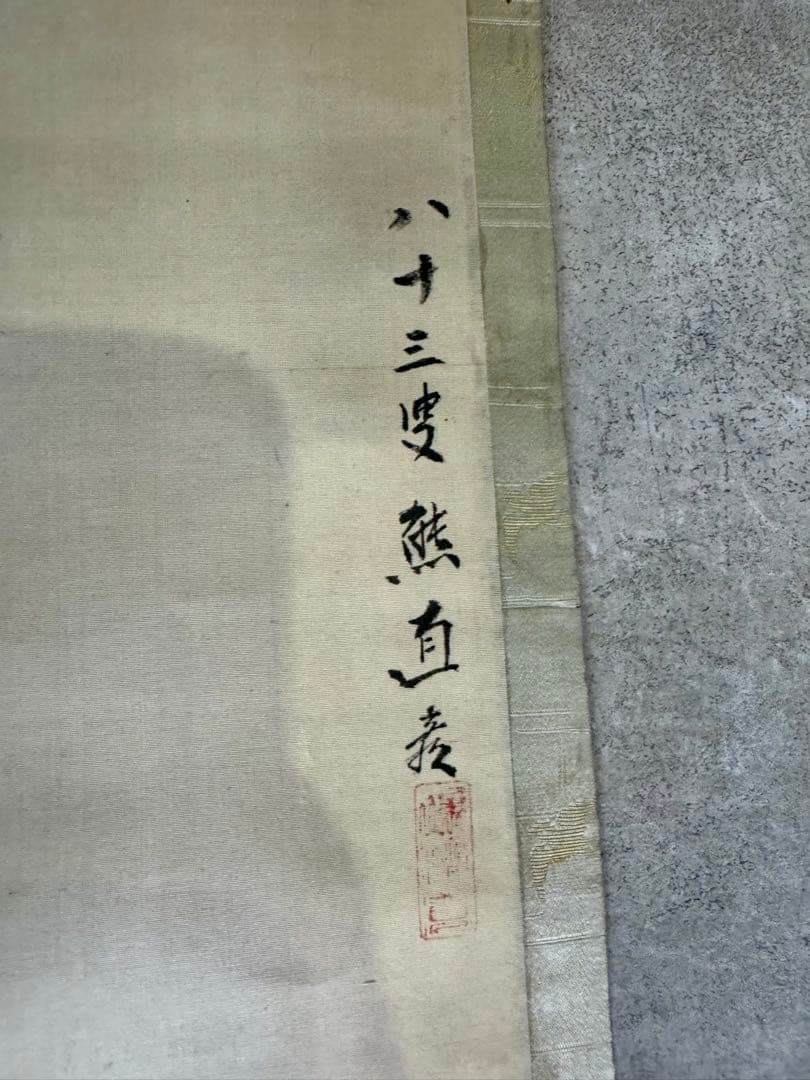 八十三叟熊直彦